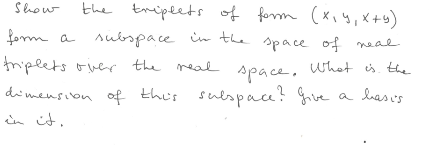 Show the triplets of form (x, y, x+y)
form a subspace in the space of real
triplets over the real space. What is the
dimension of this subspace? Give a basis
in it.